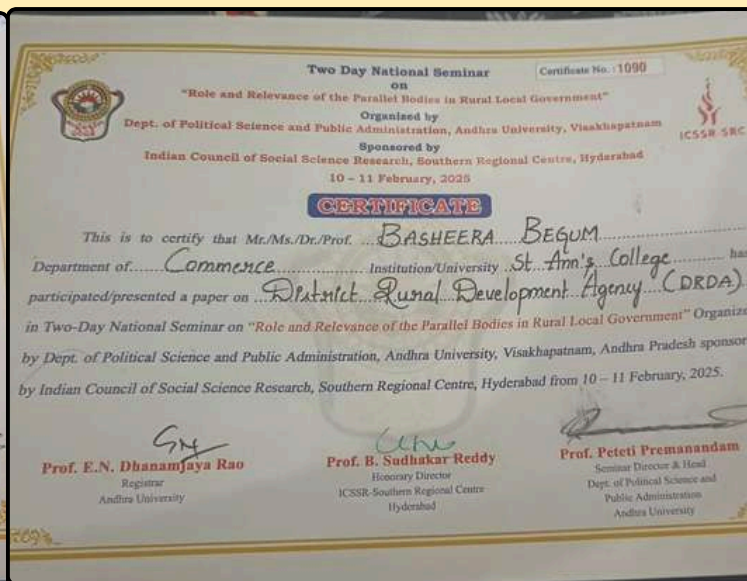 Two Day National Seminar
Certificate No. : 1090
on
"Role and Relevance of the Parallel Bodies in Rural Local Government"
Organized by
Dept. of Political Science and Public Administration, Andhra University, Visakhapatnam
ICSSR SRC
Sponsored by
Indian Council of Social Science Research, Southern Regional Centre, Hyderabad
10 – 11 February, 2025
CERTIFICATE
This is to certify that Mr./Ms./Dr./Prof. BASHEERA BEGUM
Department of Commerce Institution/University St Ann's College has
participated/presented a paper on District Rural Development Agency (DRDA).
in Two-Day National Seminar on "Role and Relevance of the Parallel Bodies in Rural Local Government" Organize
by Dept. of Political Science and Public Administration, Andhra University, Visakhapatnam, Andhra Pradesh sponsor
by Indian Council of Social Science Research, Southern Regional Centre, Hyderabad from 10 – 11 February, 2025.
Prof. E.N. Dhanamjaya Rao
Registrar
Andhra University
Prof. B. Sudhakar Reddy
Honorary Director
ICSSR-Southern Regional Centre
Hyderabad
Prof. Peteti Premanandam
Seminar Director & Head
Dept. of Political Science and
Public Administration
Andhra University